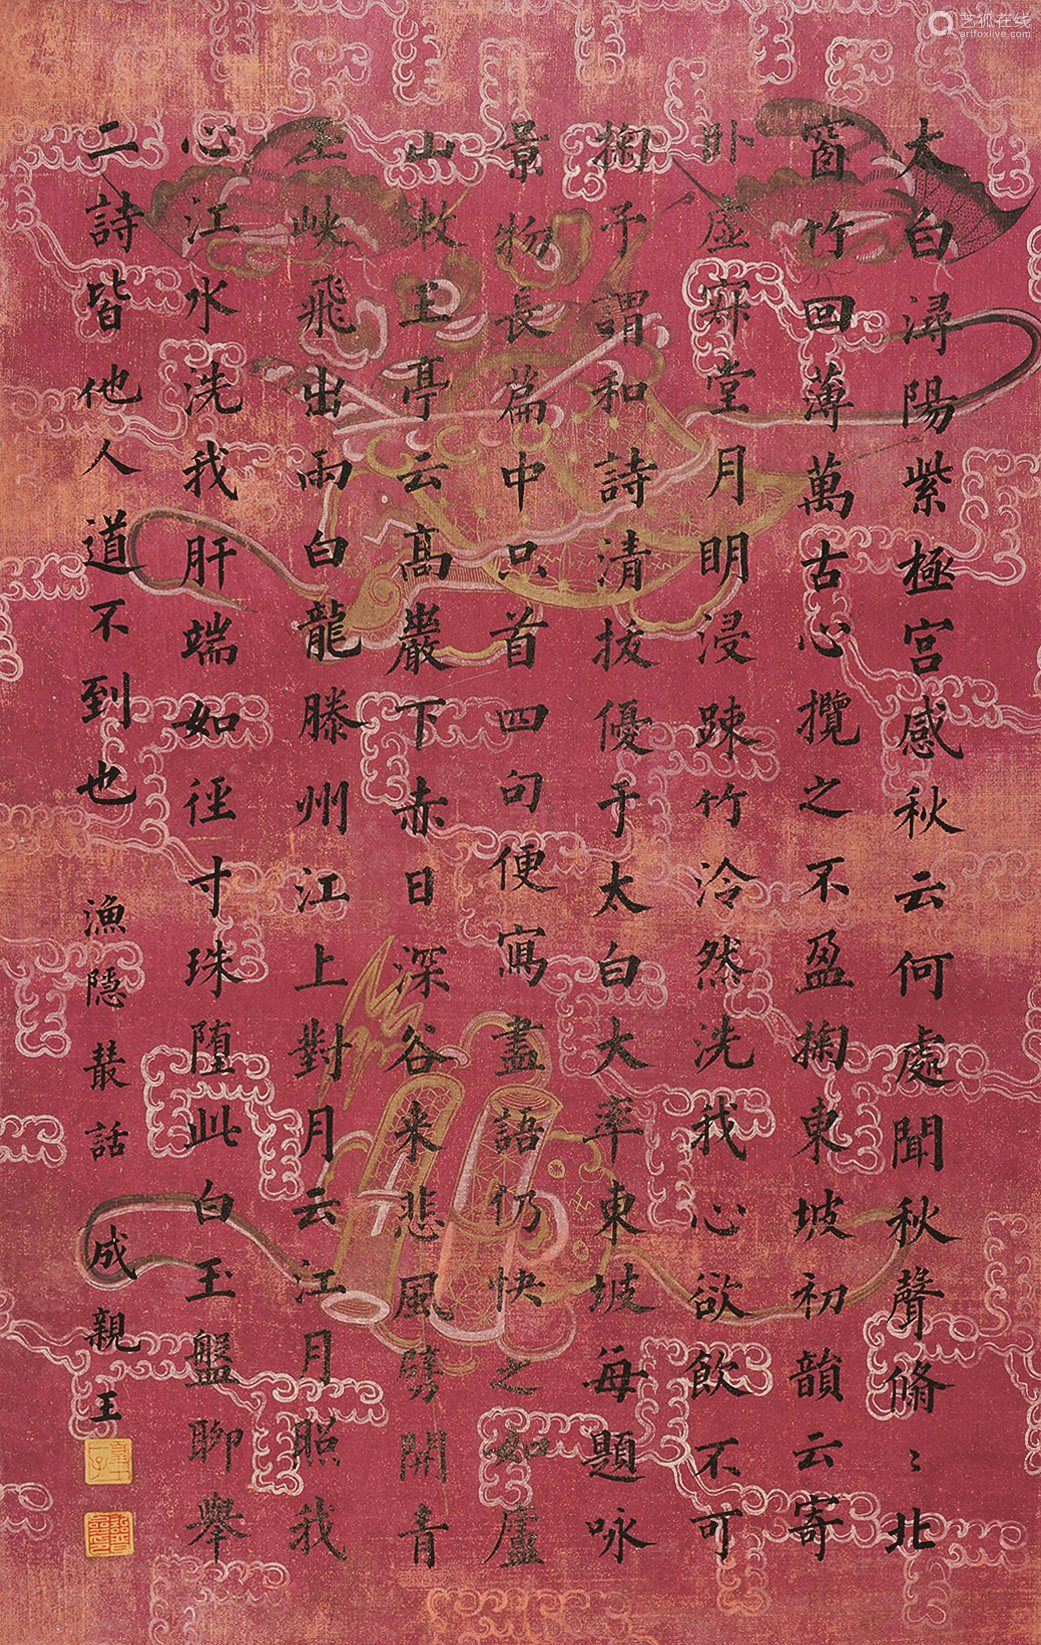 大白潯陽紫極宮感秋云何處聞秋聲翛〻北
窗竹回薄萬古心攬之不盈掬東坡初韻云寄
卧虛寂堂月明浸踈竹泠然洗我心欲飲不可
掬予謂和詩清拔優于太白大率東坡每題咏
景物長篇中只首四句便寫盡語仍快之如廬
山漱玉亭云高巖下赤日深谷来悲風劈開青
玉峽飛出兩白龍滕州江上對月云江月照我
心江水洗我肝端如徑寸珠堕此白玉盤聊舉
二詩皆他人道不到也 漁隱叢話 成親王
艺狐在线
artfoxlive.com